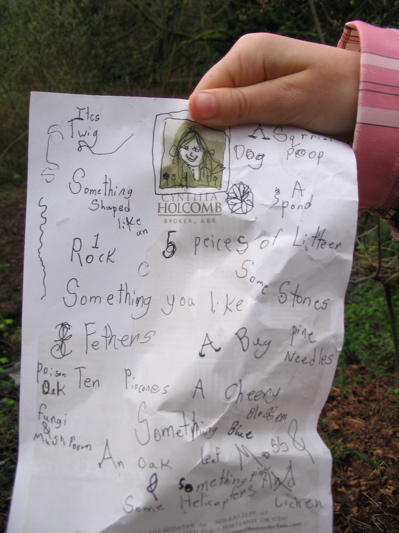 Itcs
Twig
A
Dog Poop
Something
Shaped
like
an
CYNTHIA
HOLCOMB
BROKER, ABR
A
Spond
1
Rock
5 peices of Litteer
C
Some Stones
Something you like
Fethers
A Bug
pine
Needles
Poison
Oak
Ten Pinecones
A Cheery
Blossom
fungi
&
Mushroom
Something Blue
An oak leaf
Moss &
& something pink
And
Some Helicopters
Lichen